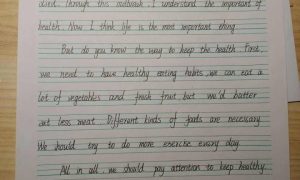 died. Through this outbreak, I understand the important of
health. Now, I think life is the most important thing
But do you know the way to keep the health. First
we need to have healthy eating habits, we can eat a
lot of vegetables and fruit but we'd batter
eat less meat. Different kinds of foods are necessary.
We should try to do more exercise every day.
All in all, we should pay attention to keep healthy.